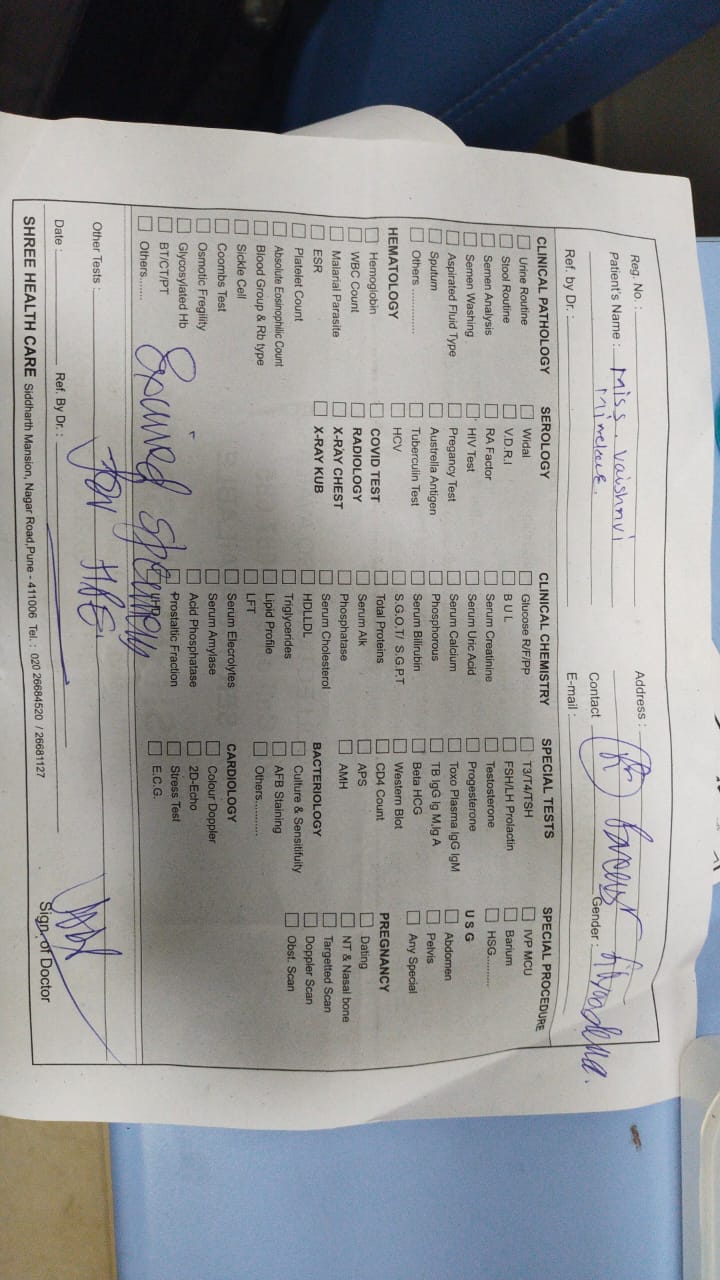 Reg. No. :
Patient's Name : Miss. Vaishnavi
Ref. by Dr. :
Address :
Contact
Gender :
E-mail :
CLINICAL PATHOLOGY
Urine Routine
Stool Routine
Semen Analysis
Semen Washing
Aspirated Fluid Type
Sputum
Others ..............
HEMATOLOGY
Hemoglobin
WBC Count
Malarial Parasite
ESR
Platelet Count
Absolute Eosinophilic Count
Blood Group & Rb type
Sickle Cell
Coombs Test
Osmotic Fregility
Glycosylated Hb
BT/CT/PT
Others.......
SEROLOGY
Widal
V.D.R.I
RA Factor
HIV Test
Pregancy Test
Austrella Antigen
Tuberculin Test
HCV
COVID TEST
RADIOLOGY
X-RAY CHEST
X-RAY KUB
CLINICAL CHEMISTRY
Glucose R/F/PP
B U L
Serum Creatinine
Serum Uric Acid
Serum Calcium
Phosphorous
Serum Bilirubin
S.G.O.T/ S.G.P.T
Total Proteins
Serum Alk
Phosphatase
Serum Cholesterol
HDLLDL
Triglycerides
Lipid Profile
LFT
Serum Elecrolytes
Serum Amylase
Acid Phosphatase
Prostaltic Fraction
SPECIAL TESTS
T3/T4/TSH
FSH/LH Prolactin
Testosterone
Progesterone
Toxo Plasema IgG IgM
TB IgG Ig M,Ig A
Beta HCG
Western Blot
CD4 Count
APS
AMH
BACTERIOLOGY
Culture & Sensitifuity
AFB Staining
Others...........
CARDIOLOGY
Colour Doppler
2D-Echo
Stress Test
E.C.G.
SPECIAL PROCEDURE
IVP MCU
Barium
HSG..........
U S G
Abdomen
Pelvis
Any Special
PREGNANCY
Dating
NT & Nasal bone
Targetted Scan
Doppler Scan
Obst. Scan
Other Tests :
for HPE
Date :
Ref. By Dr. :
Sign. of Doctor
SHREE HEALTH CARE Siddharth Mansion, Nagar Road,Pune - 411006 Tel. : 020 26684520 / 26681127